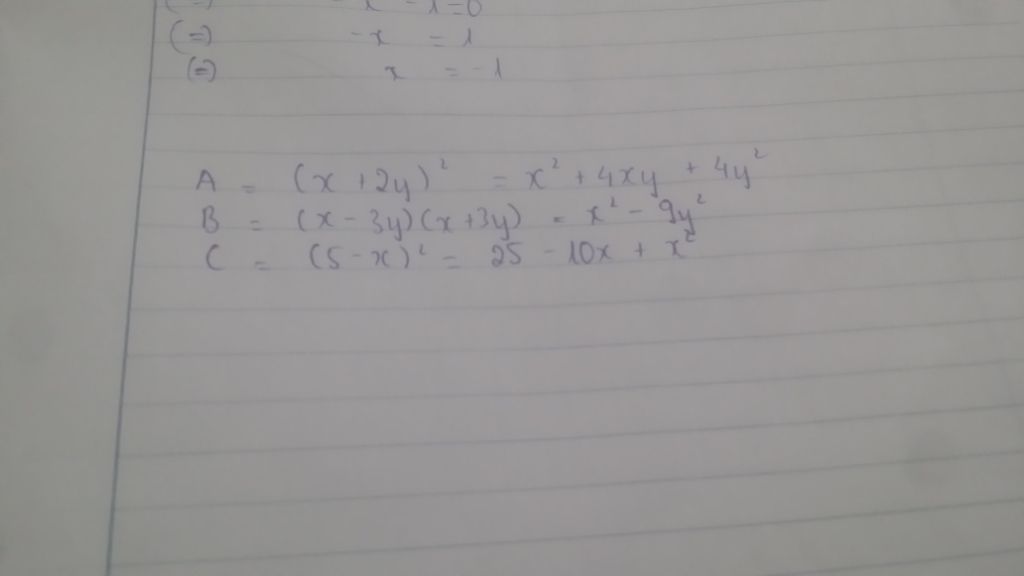 (=) - x = 1
(=) x = -1
A = (x + 2y)² = x² + 4xy + 4y²
B = (x - 3y)(x + 3y) = x² - 9y²
C = (5 - x)² = 25 - 10x + x²